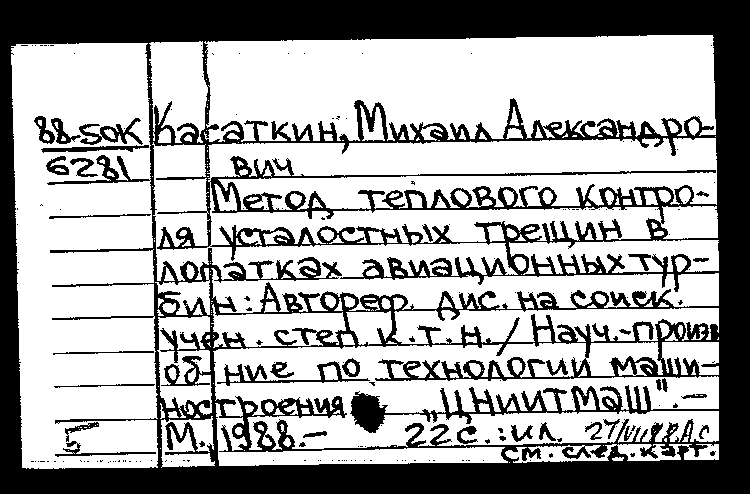 88-5ОК Касаткин, Михаил Александро-
6281 вич
Метод теплового контро-
ля усталостных трещин в
лопатках авиационных тур-
бин: Автореф. дис. на соиск.
учен. степ. к.т.н. / Науч.-произв
об-ние по технологии маши-
ностроения "ЦНИИТМАШ". -
5 М., 1988.- 22 с. : ил.
см. след. карт.